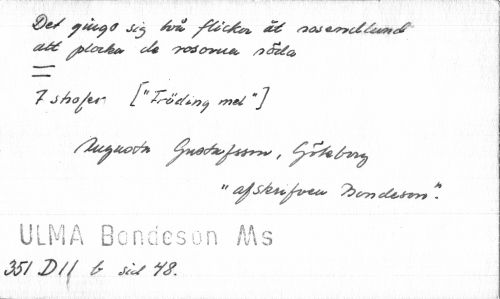 Det gingo sig två flickor åt rosendelund
att plocka de rosorna röda
7 strofer ["Fröding mel"]
Augusta Gustafsson, Göteborg
"afskrifven Bondeson".
ULMA Bondeson Ms
351 D11 b sid 48.